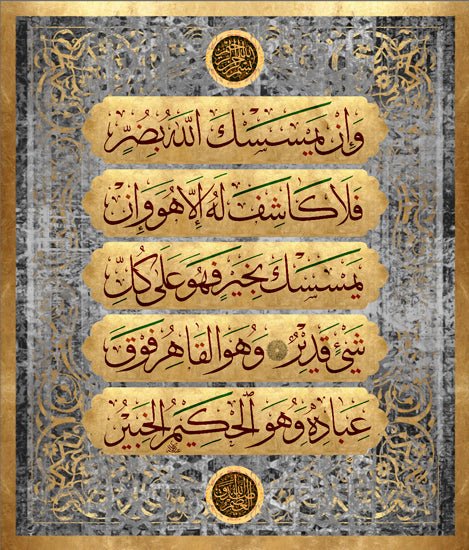 بسم الله الرحمن الرحيم
وَإِن يَمْسَسْكَ اللَّهُ بِضُرٍّ
فَلَا كَاشِفَ لَهُ إِلَّا هُوَ وَإِنْ
يَمْسَسْكَ بِخَيْرٍ فَهُوَ عَلَىٰ كُلِّ
شَيْءٍ قَدِيرٌ وَهُوَ الْقَاهِرُ فَوْقَ
عِبَادِهِ وَهُوَ الْحَكِيمُ الْخَبِيرُ
صدق الله العظيم